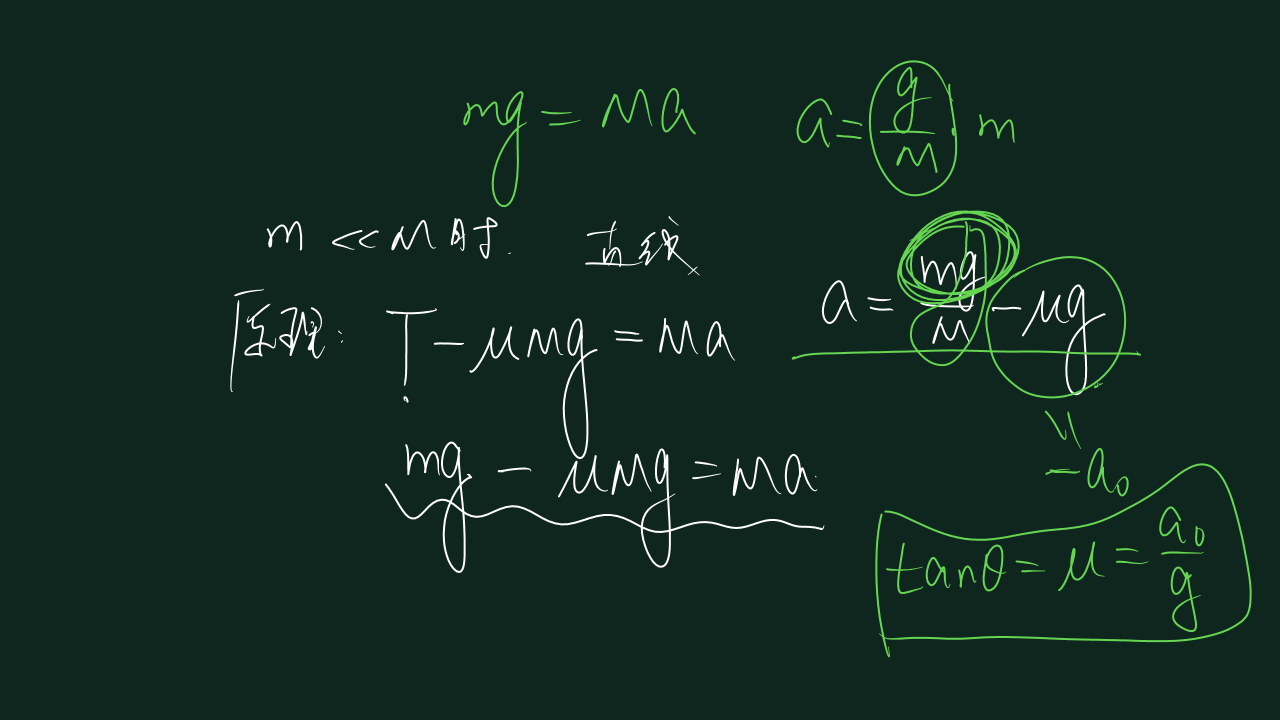 mg = Ma
a = g/M m
m << M时. 直线
原理: T - μMg = Ma
a = mg/M - μg
mg - μMg = Ma
- a₀
tanθ = μ = a₀/g